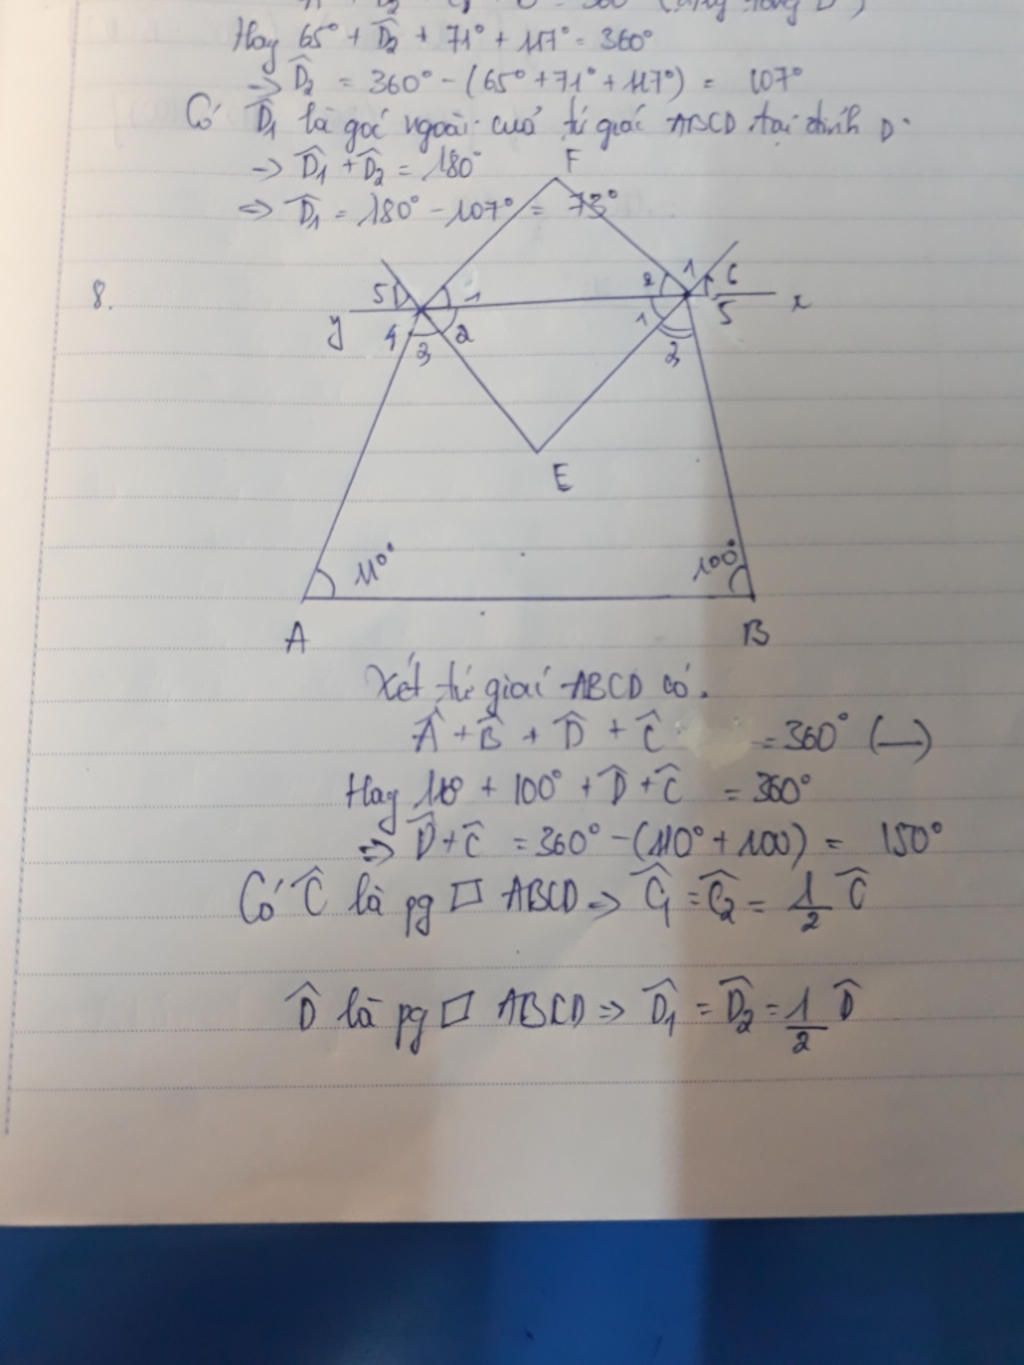 Hay 65° + D̂₂ + 71° + 117° = 360°
→ D̂₂ = 360° - (65° + 71° + 117°) = 107°
Có D̂₁ là góc ngoài của tứ giác ABCD tại đỉnh D
→ D̂₁ + D̂₂ = 180°
⇒ D̂₁ = 180° - 107° = 73°
F
8.
5 1 2 1 6
y 4 3 2 1 2 5 x
E
110° 100°
A B
Xét tứ giác ABCD có.
Â + B̂ + D̂ + Ĉ = 360° (—)
Hay 110° + 100° + D̂ + Ĉ = 360°
⇒ D̂ + Ĉ = 360° - (110° + 100) = 150°
Có Ĉ là pg □ ABCD ⇒ Ĉ₁ = Ĉ₂ = 1/2 Ĉ
D̂ là pg □ ABCD ⇒ D̂₁ = D̂₂ = 1/2 D̂